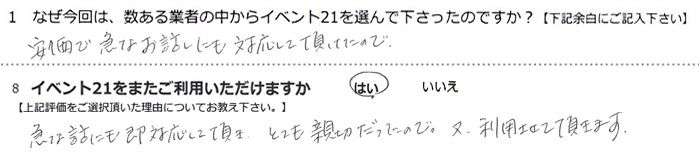 1 なぜ今回は、数ある業者の中からイベント21を選んで下さったのですか？【下記余白にご記入下さい】
安価で急なお話しにも対応して頂けたので。
8 イベント21をまたご利用いただけますか　はい　いいえ
【上記評価をご選択頂いた理由についてお教え下さい。】
急な話にも即対応して頂き、とても親切だったので。又、利用させて頂きます。